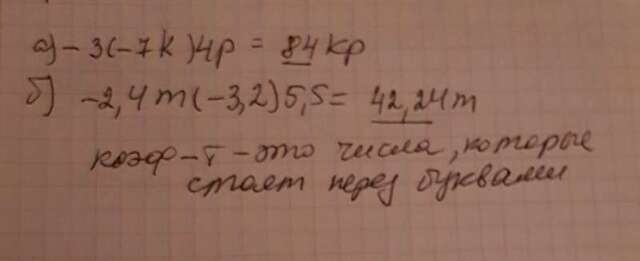 а) - 3(-7k)4p = 84kp
б) -2,4m(-3,2)5,5 = 42,24m
коэф-т - это числа, которые
стоят перед буквами